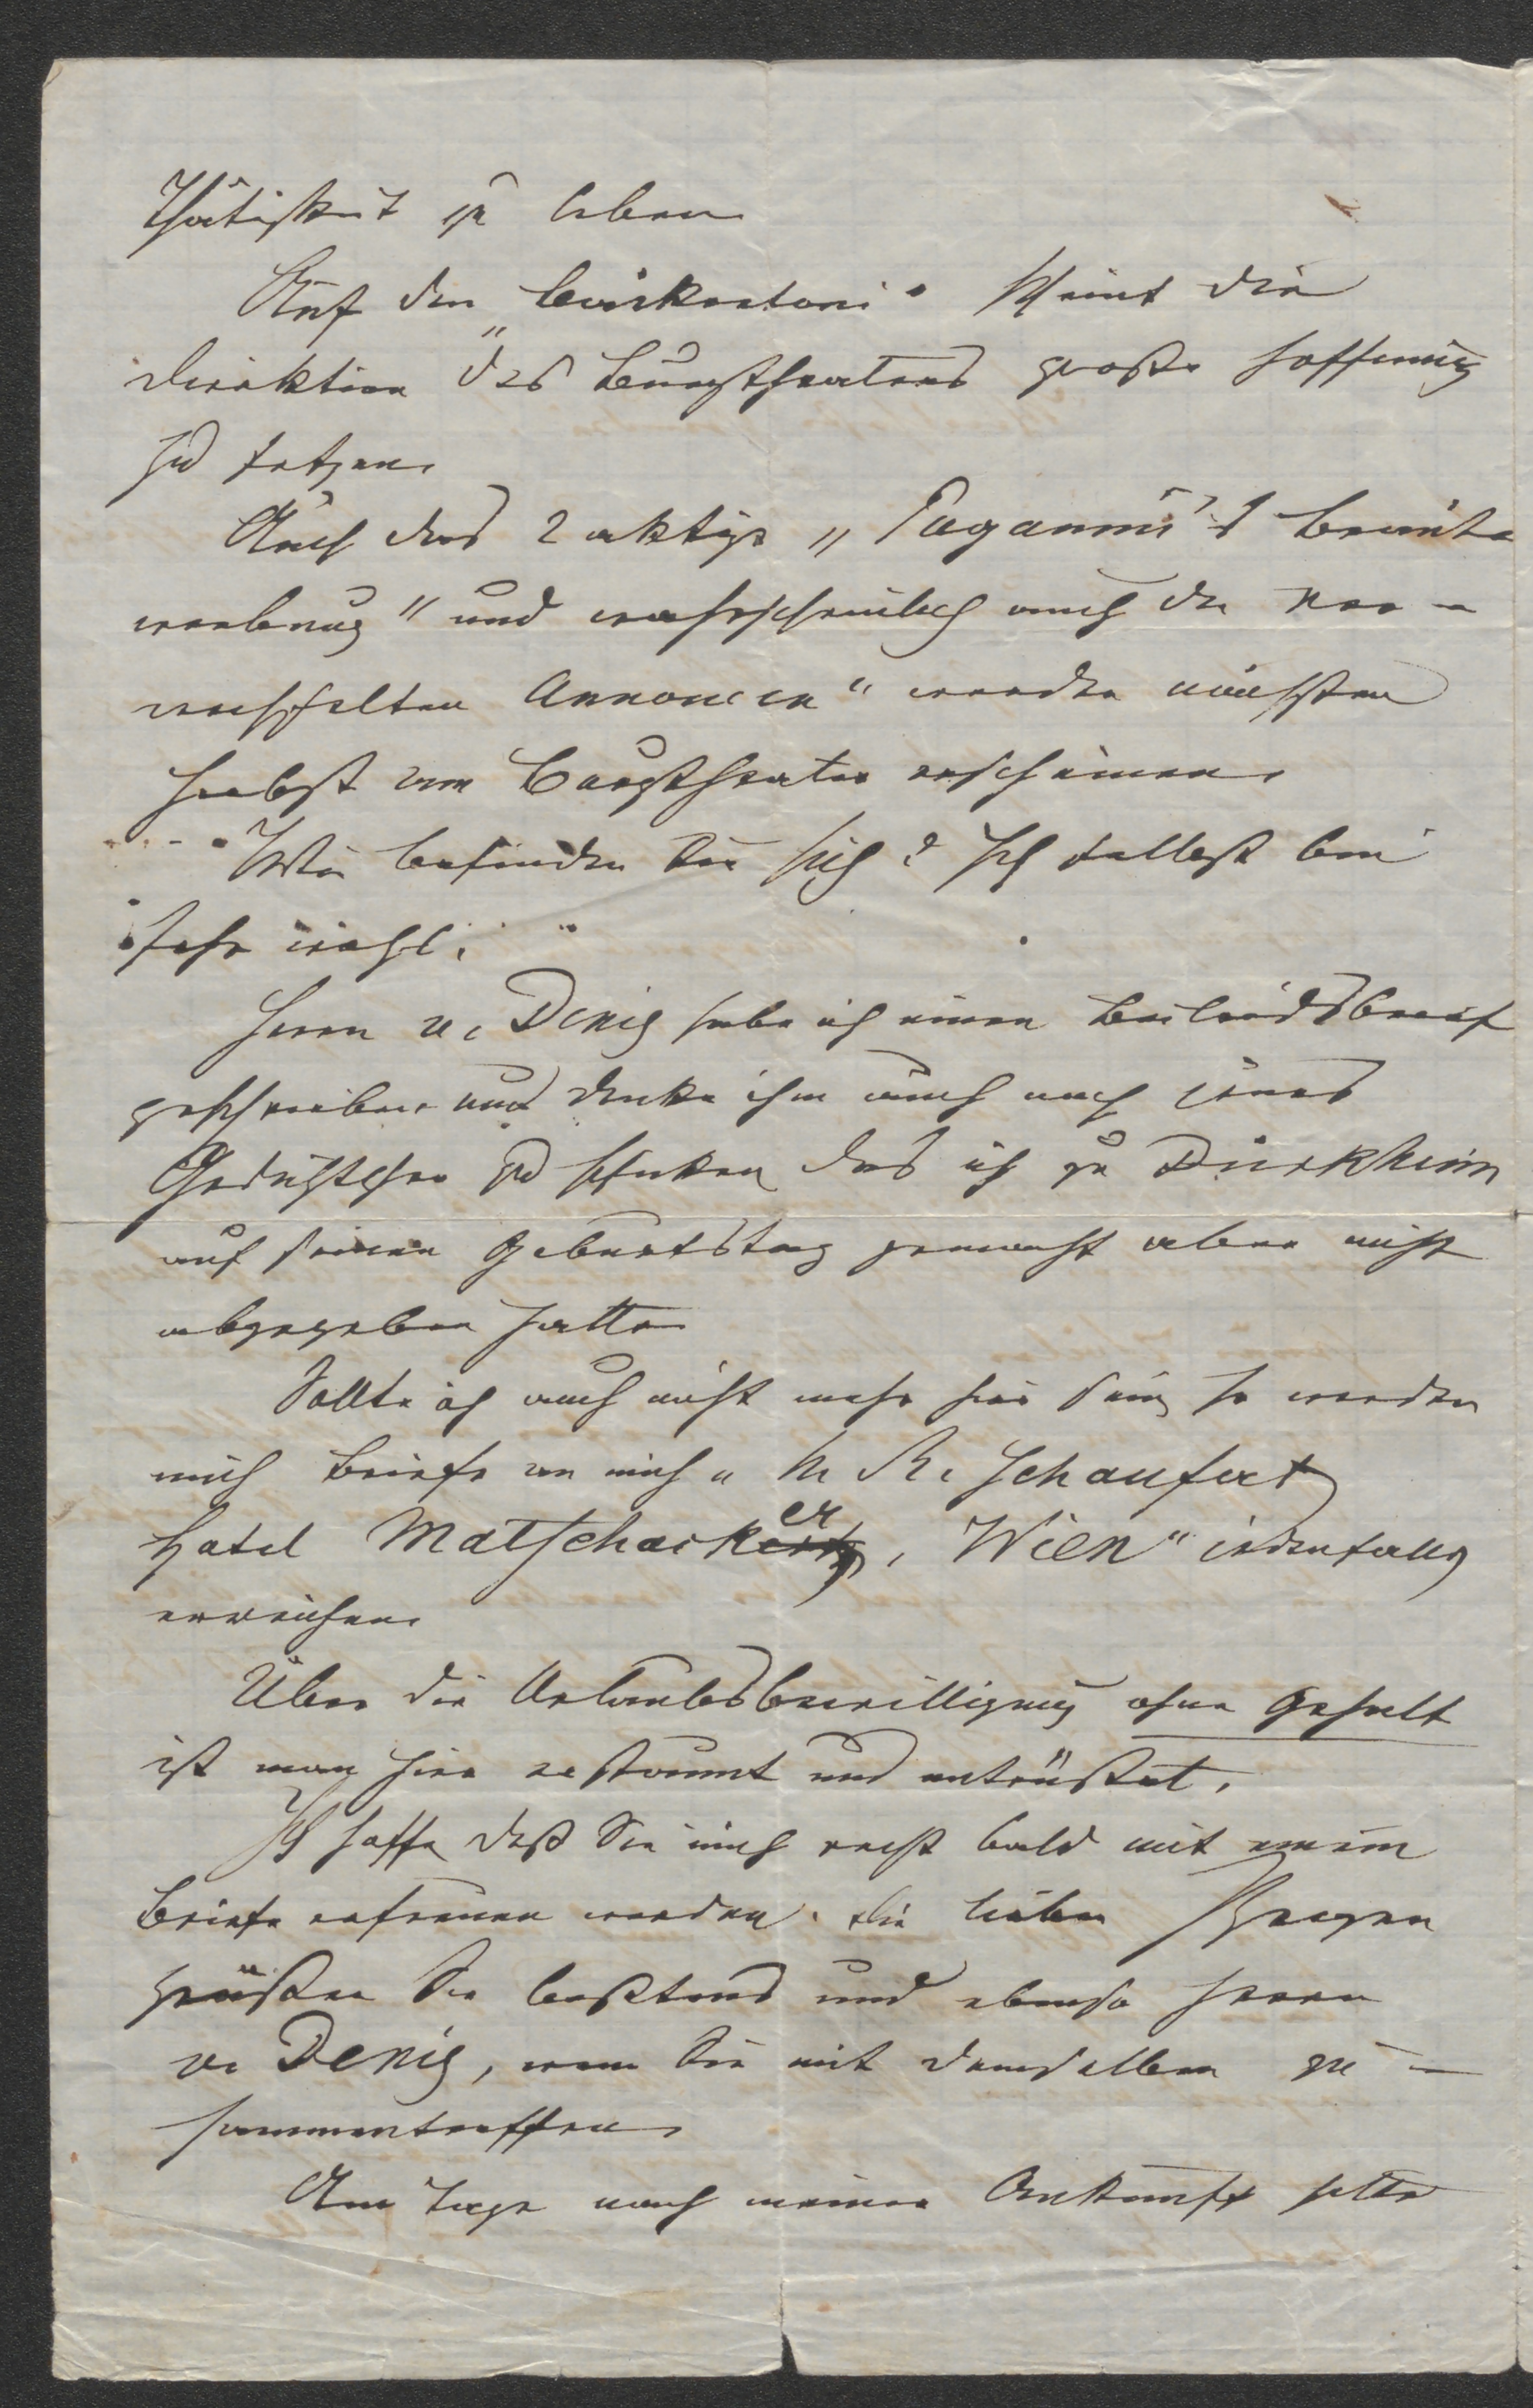 Thätigkeit zu leben.
Auf den „Cavirkantoni“ scheint die
Direktion des Burgtheaters große Hoffnung
zu setzen.
Auch das 2 aktige „Paganini's Braut-
werbung“ und wahrscheinlich auch die „ver-
wechselten Annoncen“ werden nächsten
Herbst am Burgtheater erscheinen.
Wie befinden Sie sich? Ich selbst bin
sehr wohl.
Herrn v. Denis habe ich einen Beileidsbrief
geschrieben und denke ihm auch noch jenes
Gedichtchen zu schicken das ich zu Dürkheim
auf seinen Geburtstag gemacht aber nicht
abgegeben hatte.
Sollte ich auch nicht mehr hier sein, so werden
mich Briefe an mich „H. R. Schaufert,
Hotel Matschacker, Wien“ jedenfalls
erreichen.
Über die Urlaubsbewilligung ohne Gehalt
ist man hier erstaunt und entrüstet.
Ich hoffe daß Sie mich recht bald mit einem
Briefe erfreuen werden. Die lieben
grüßen Sie bestens und ebenso Herrn
v. Denis, wenn Sie mit demselben zu-
sammentreffen.
Am Tage nach meiner Ankunft hatte